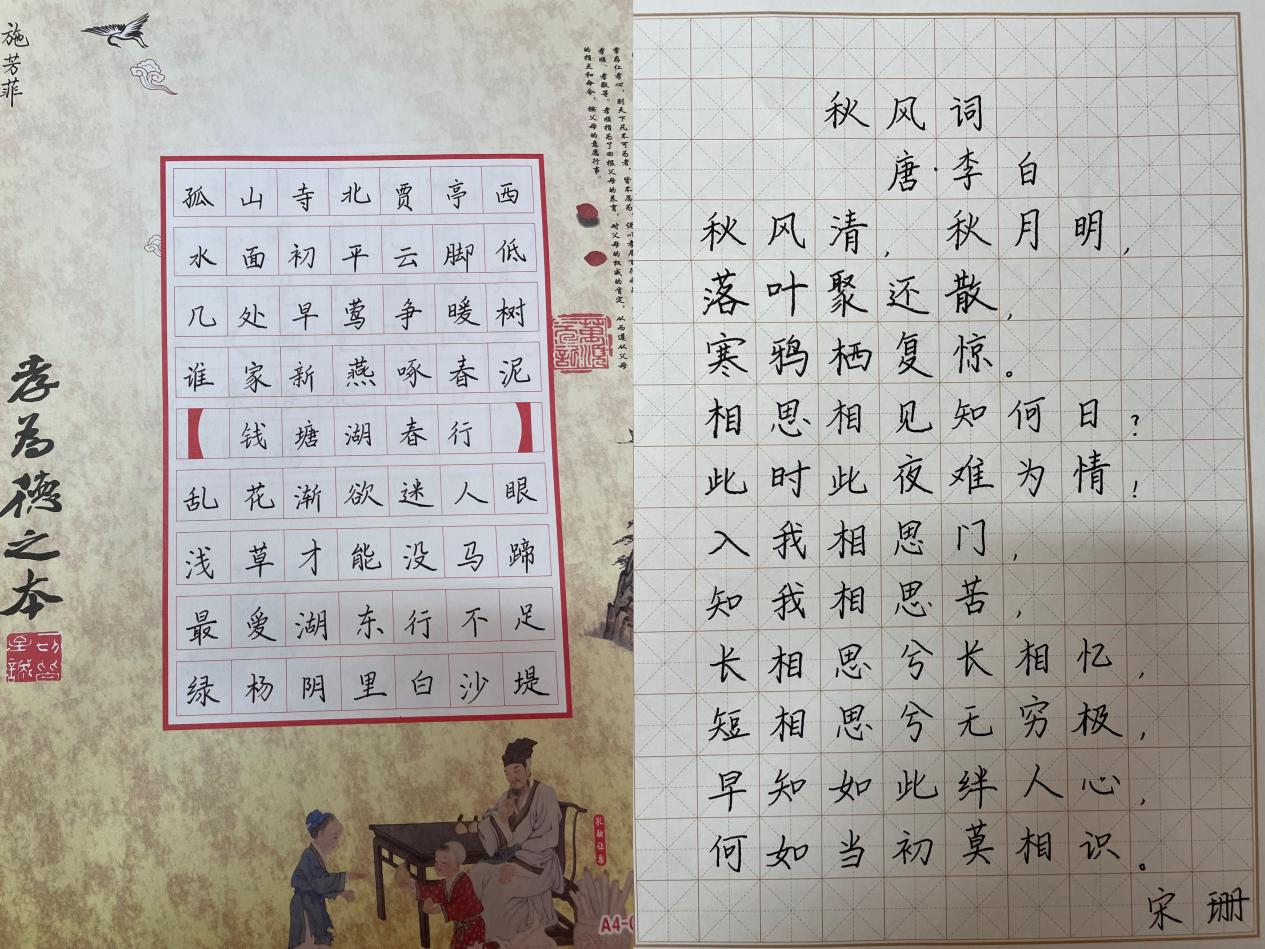 施芳菲
孤山寺北贾亭西
水面初平云脚低
几处早莺争暖树
谁家新燕啄春泥
钱塘湖春行
乱花渐欲迷人眼
浅草才能没马蹄
最爱湖东行不足
绿杨阴里白沙堤
孝为德之本
孔融让梨
A4-0
秋风词
唐·李白
秋风清，秋月明，
落叶聚还散，
寒鸦栖复惊。
相思相见知何日？
此时此夜难为情！
入我相思门，
知我相思苦，
长相思兮长相忆，
短相思兮无穷极，
早知如此绊人心，
何如当初莫相识。
宋珊